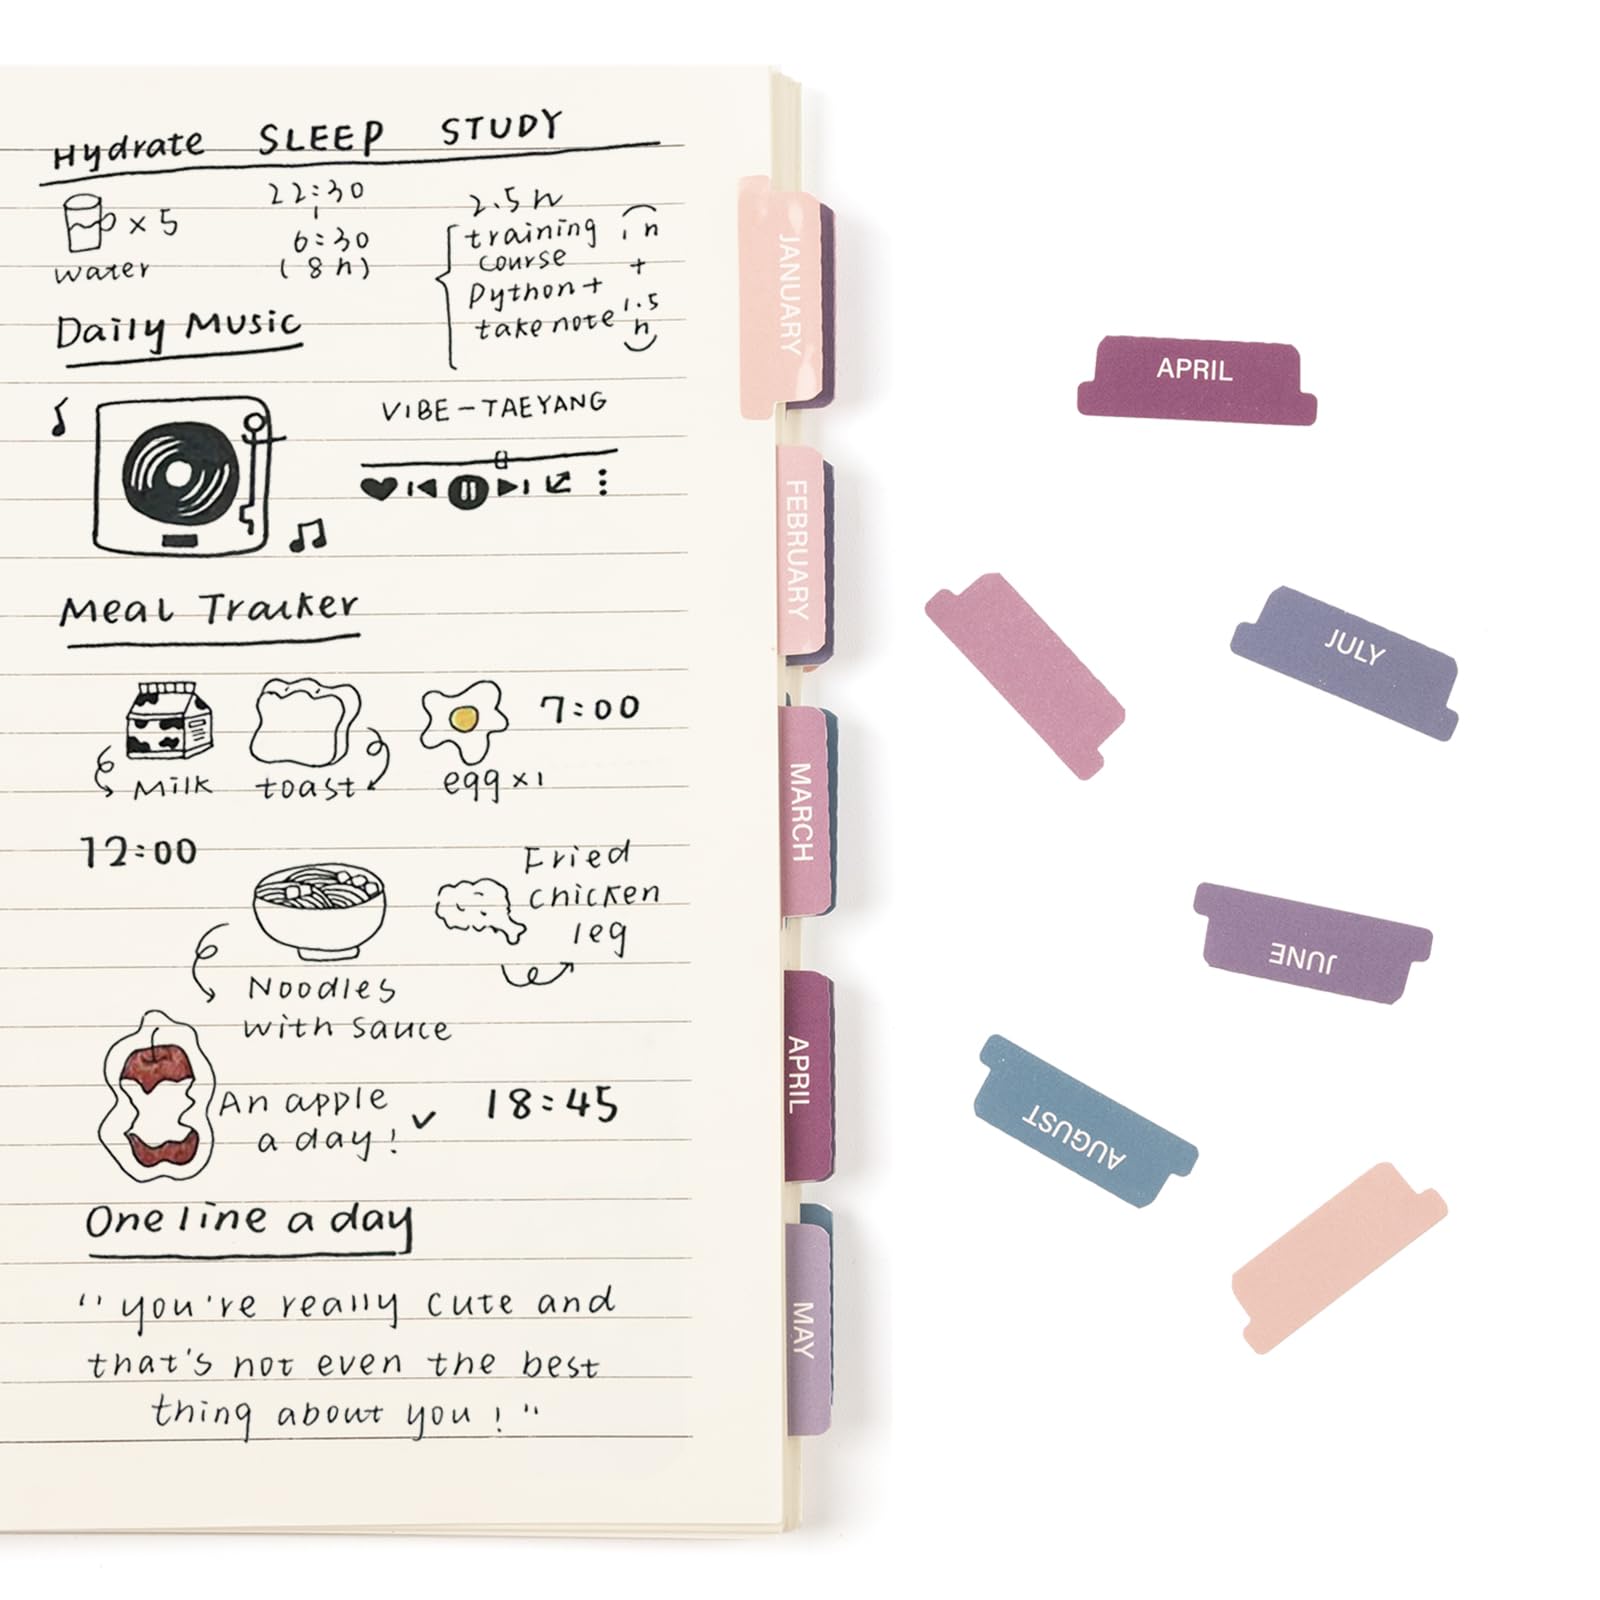 Hydrate SLEEP STUDY
x 5
water
22:30
6:30
(8h)
2.5h
training 1h
course +
Python+ 1.5
take note h
Daily Music
VIBE-TAEYANG
Meal Tracker
Milk
toast
egg x1
7:00
12:00
Noodles
with sauce
Fried
chicken
leg
An apple
a day!
18:45
One line a day
"you're really cute and
that's not even the best
thing about you!"
JANUARY
FEBRUARY
MARCH
APRIL
MAY
APRIL
JULY
JUNE
AUGUST